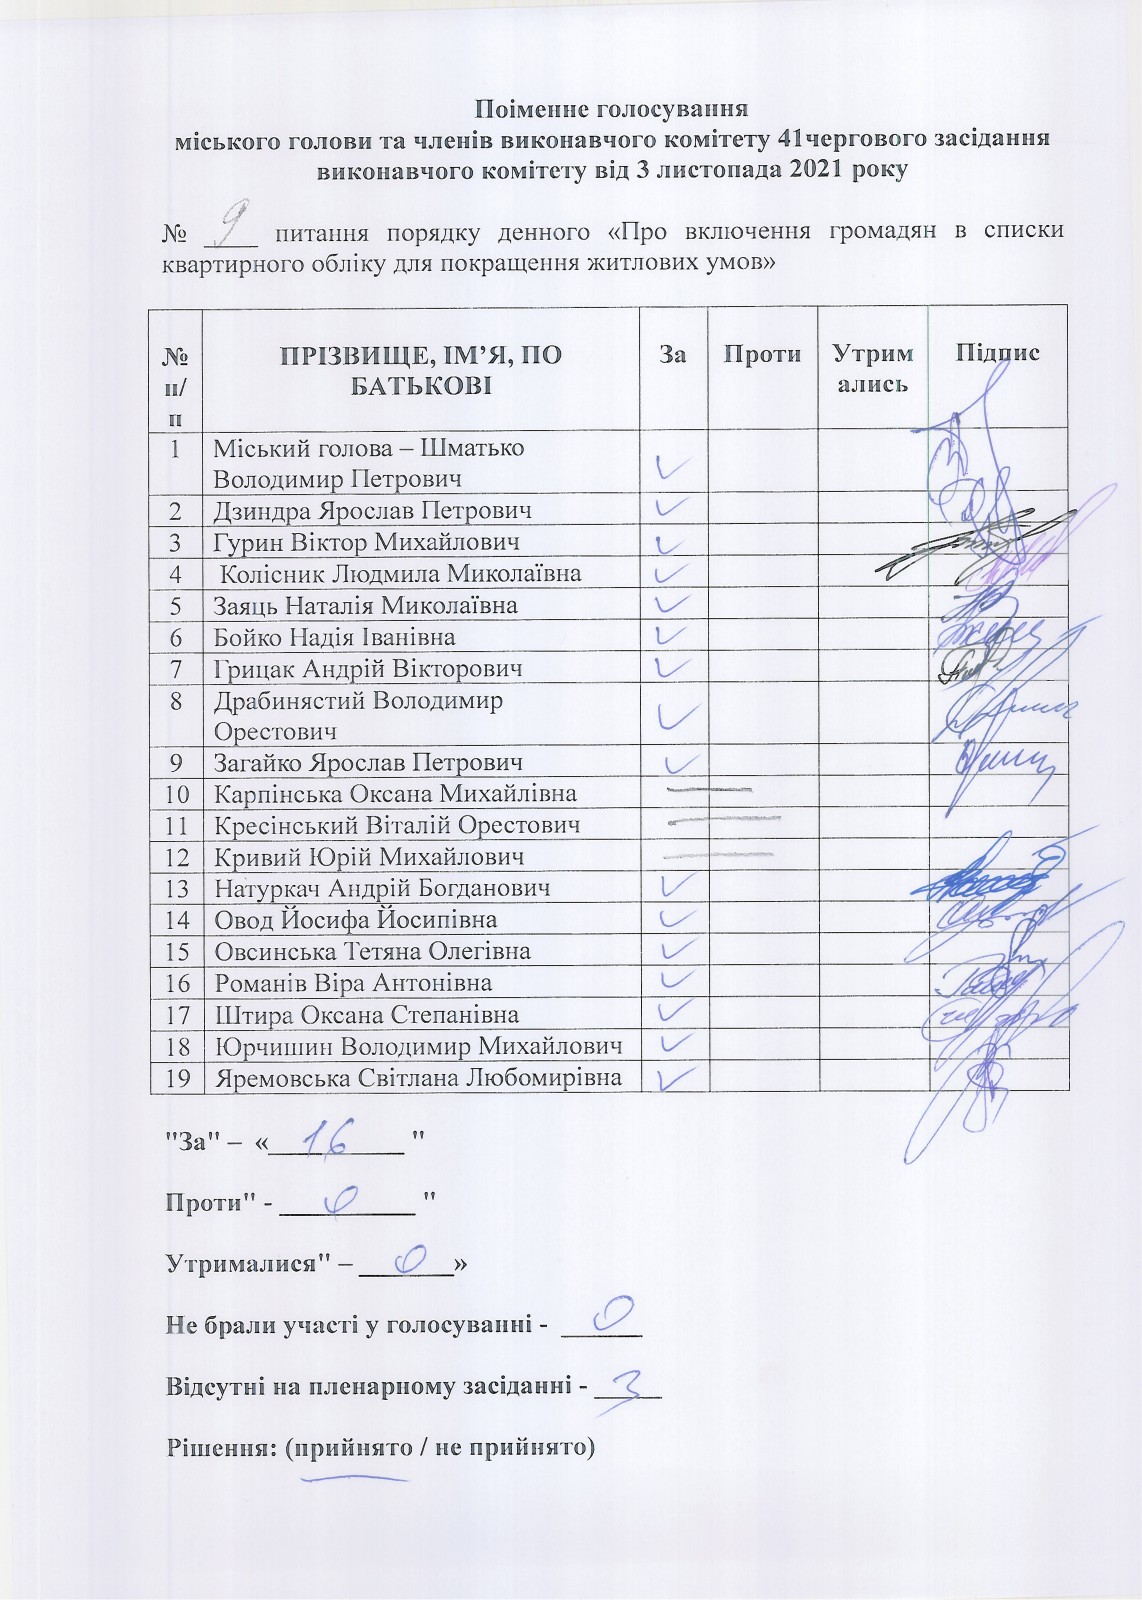 Поіменне голосування
міського голови та членів виконавчого комітету 41чергового засідання
виконавчого комітету від 3 листопада 2021 року
№ 9 питання порядку денного «Про включення громадян в списки
квартирного обліку для покращення житлових умов»
№ п/п ПРІЗВИЩЕ, ІМ’Я, ПО БАТЬКОВІ За Проти Утримались Підпис
1 Міський голова – Шматько
Володимир Петрович
2 Дзиндра Ярослав Петрович
3 Гурин Віктор Михайлович
4 Колісник Людмила Миколаївна
5 Заяць Наталія Миколаївна
6 Бойко Надія Іванівна
7 Грицак Андрій Вікторович
8 Драбинястий Володимир
Орестович
9 Загайко Ярослав Петрович
10 Карпінська Оксана Михайлівна
11 Кресінський Віталій Орестович
12 Кривий Юрій Михайлович
13 Натуркач Андрій Богданович
14 Овод Йосифа Йосипівна
15 Овсинська Тетяна Олегівна
16 Романів Віра Антонівна
17 Штира Оксана Степанівна
18 Юрчишин Володимир Михайлович
19 Яремовська Світлана Любомирівна
"За" – « 16 "
Проти" - 0 "
Утрималися" – 0 »
Не брали участі у голосуванні - 0
Відсутні на пленарному засіданні - 3
Рішення: (прийнято / не прийнято)